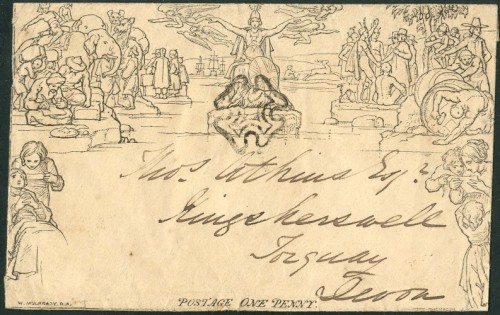 Thos Atkins Esqr
Kingskerswell
Torquay
Devon
POSTAGE ONE PENNY.
W. MULREADY, R.A.